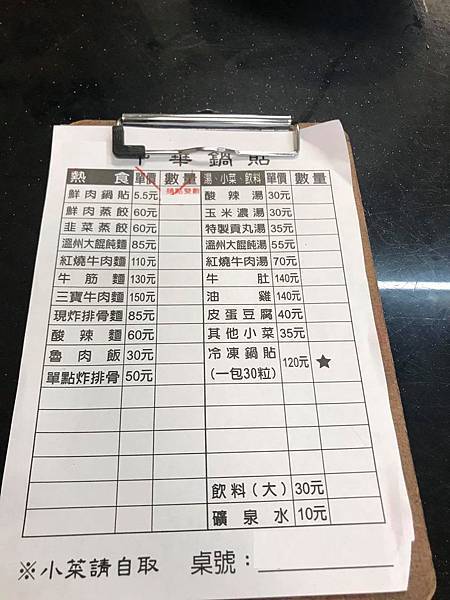 中華鍋貼
熱食 單價 數量 湯、小菜、飲料 單價 數量
請點雙數
鮮肉鍋貼 5.5元 酸辣湯 30元
鮮肉蒸餃 60元 玉米濃湯 30元
韭菜蒸餃 60元 特製貢丸湯 35元
溫州大餛飩麵 85元 溫州大餛飩湯 55元
紅燒牛肉麵 110元 紅燒牛肉湯 70元
牛筋麵 130元 牛肚 140元
三寶牛肉麵 150元 油雞 140元
現炸排骨麵 85元 皮蛋豆腐 40元
酸辣麵 60元 其他小菜 35元
魯肉飯 30元 冷凍鍋貼 120元 ★
單點炸排骨 50元 (一包30粒)
飲料(大) 30元
礦泉水 10元
※小菜請自取 桌號：